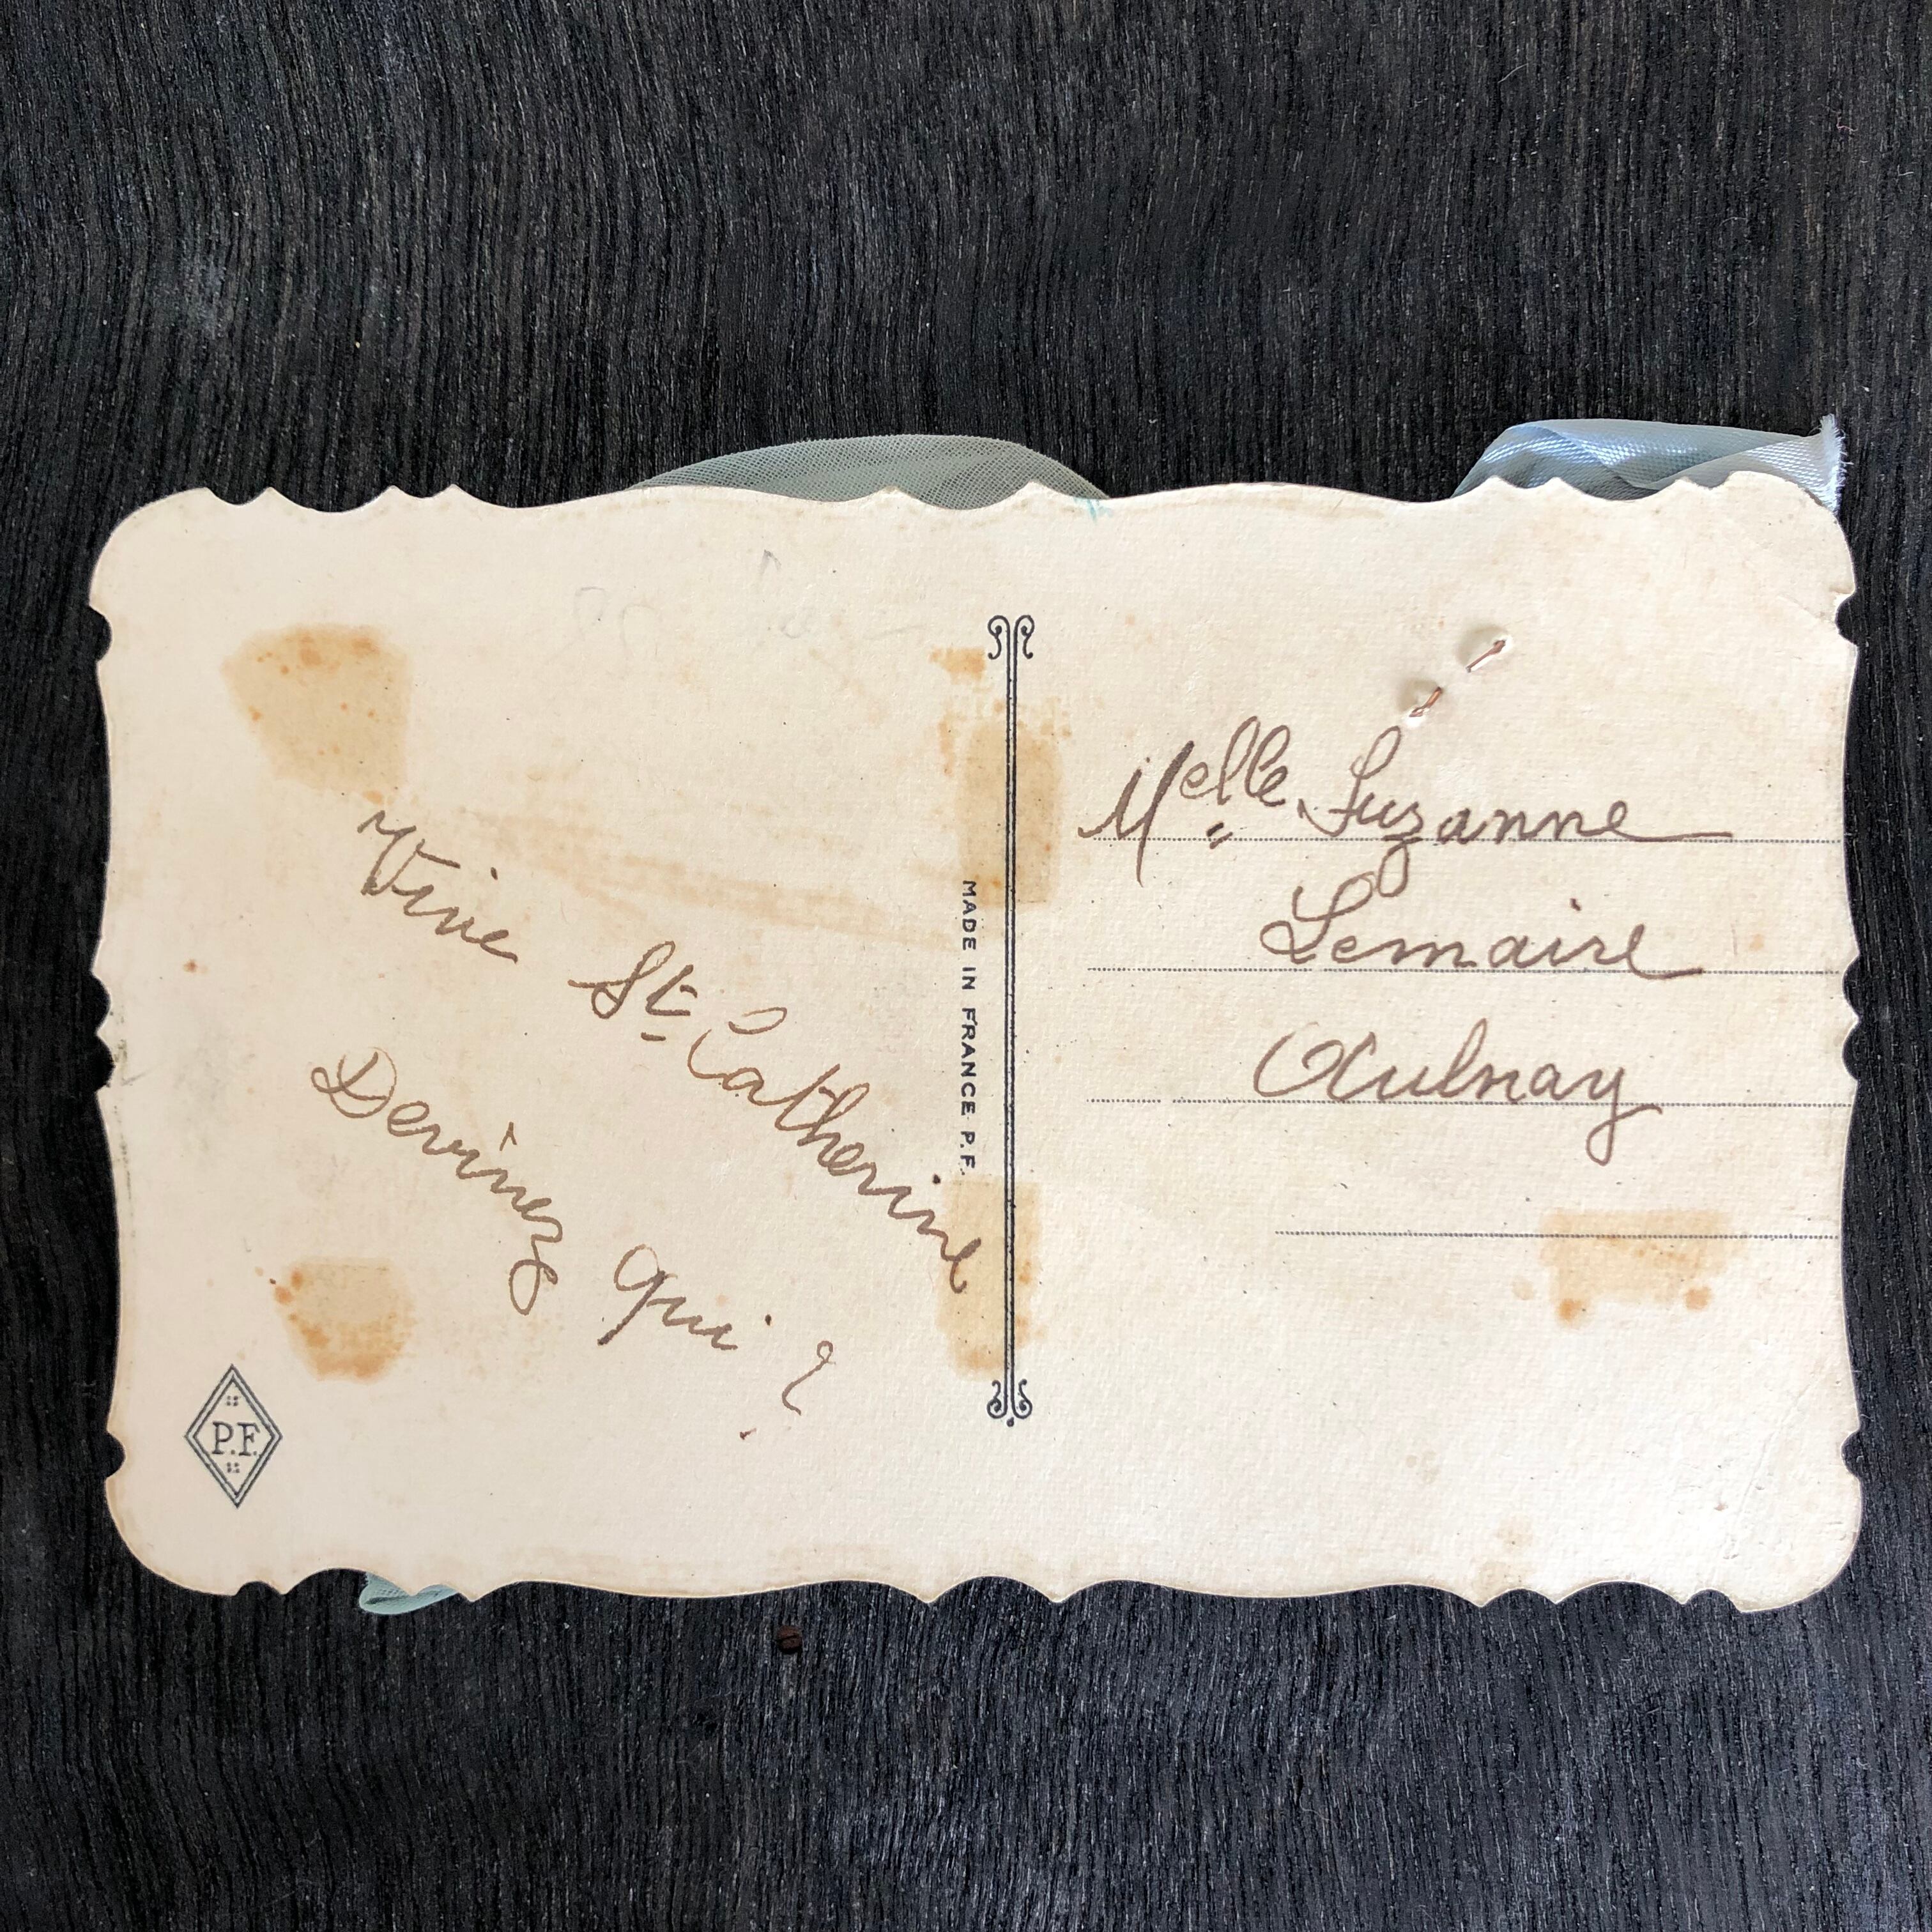 Vive
St Catherine
Devinez
qui ?
P.F.
MADE IN FRANCE P.F.
Melle Suzanne
Lemaire
Aulnay